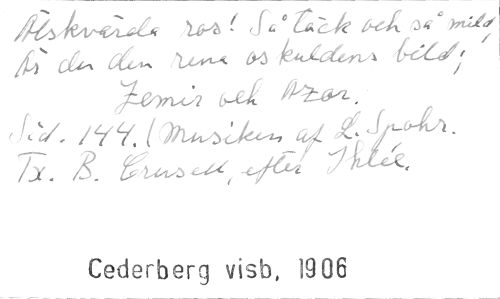 Älskvärda ros! Så täck och så mild,
Är du den rena oskuldens bild;
Zemir och Azor.
Sid. 144. (Musiken af L. Spohr.
Tx. B. Crusell, efter Ihlée.
Cederberg visb. 1906